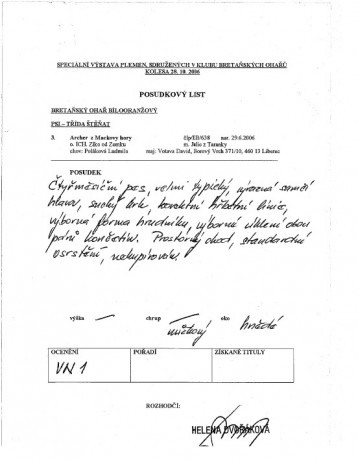 SPECIÁLNÍ VÝSTAVA PLEMEN, SDRUŽENÝCH V KLUBU BRETAŇSKÝCH OHAŘŮ
KOLESA 28. 10. 2006
POSUDKOVÝ LIST
BRETAŇSKÝ OHAŘ BÍLOORANŽOVÝ
PSI – TŘÍDA ŠTĚŇAT
3. Archer z Mackovy hory člp/EB/638 nar. 29.6.2006
o. ICH. Ziko od Zamku m. Julie z Tanasky
chov: Poláková Ludmila maj: Votava David, Borový Vrch 371/10, 460 13 Liberec
POSUDEK
Čtyřměsíční pes, velmi typický, výrazná samčí
hlava, suchý krk korektní hřbetní linie,
výborná forma hrudníku, výborné úhlení obou
párů končetin. Prostorný chod, standardní
osrstění, nekupírován.
výška – chrup mléčný oko hnědé
OCENĚNÍ POŘADÍ ZÍSKANÉ TITULY
VN 1
ROZHODČÍ:
HELENA DVOŘÁKOVÁ